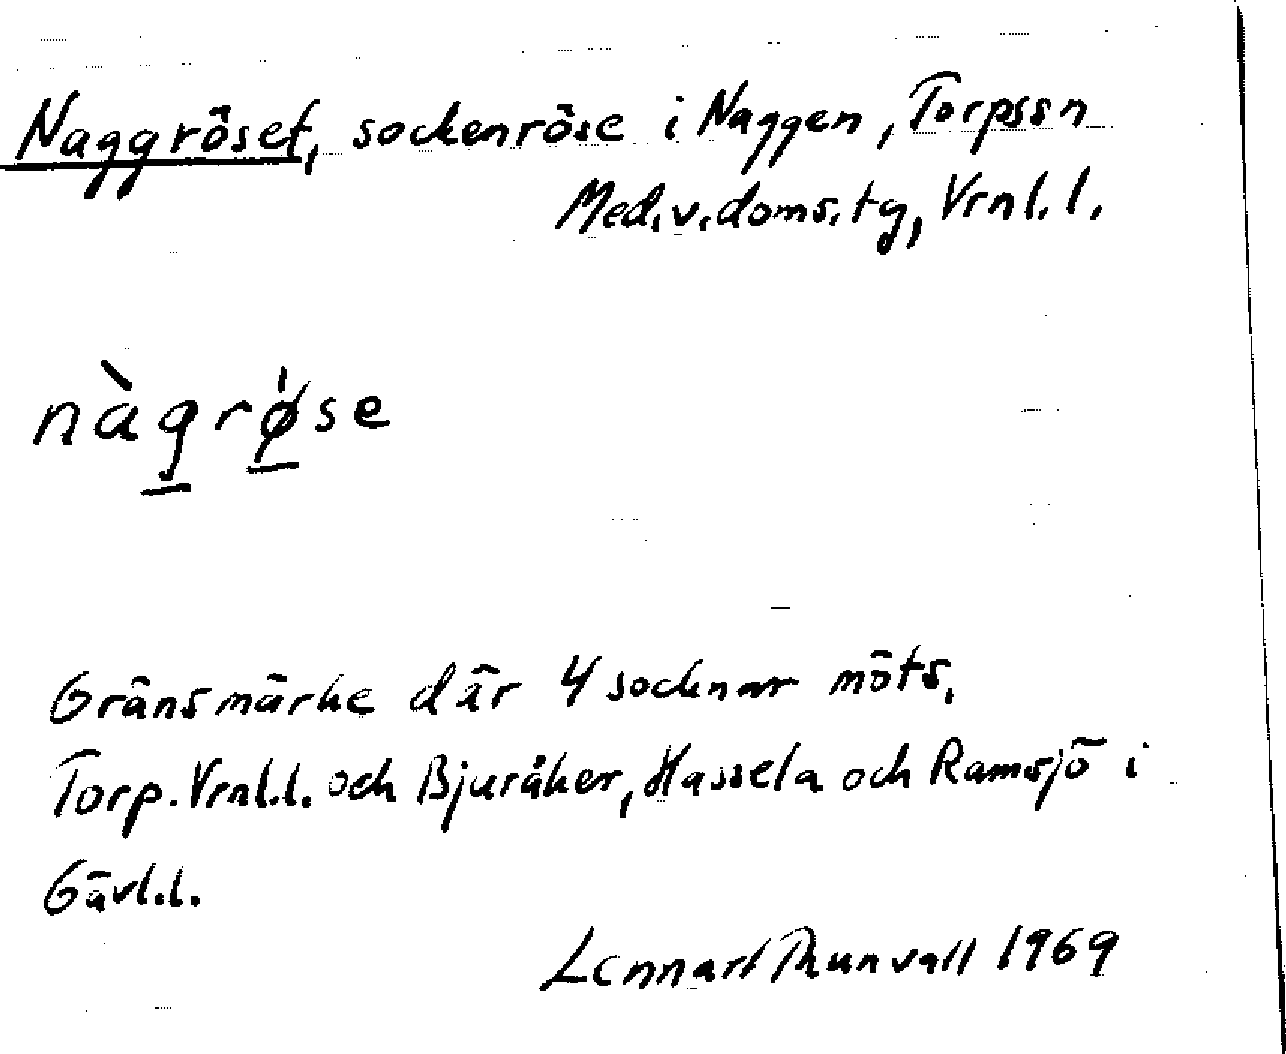 Naggröset, sockenröse i Naggen, Torpssn
Med.v.doms.tg, Vrnl.l.
nàgrø̀se
Gränsmärke där 4 socknar möts.
Torp. Vrnl.l. och Bjuråker, Hassela och Ramsjö i
Gävl.l.
Lennart Thunvall 1969